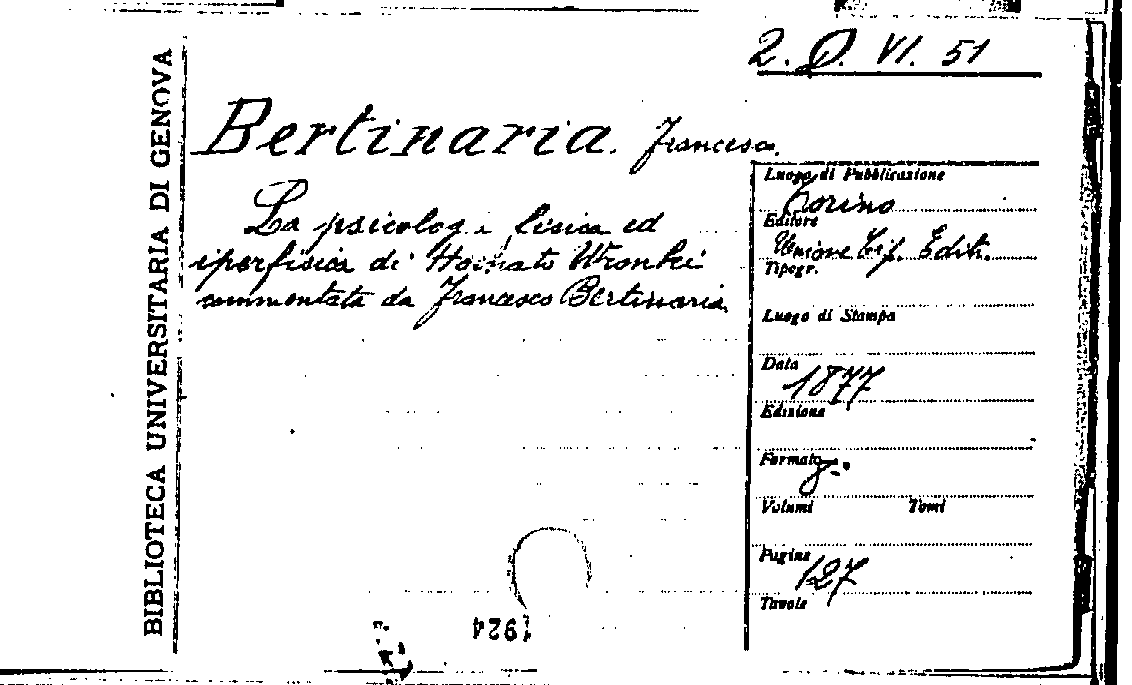 2. Q. VI. 51
BIBLIOTECA UNIVERSITARIA DI GENOVA
Bertinaria. Francesco.
La psicolog a fisica ed
iperfisica di Hoenato Wronki
commentata da Francesco Bertinaria.
Luogo di Pubblicazione
Torino
Editore
Unione Tip. Edit.
Tipogr.
Luogo di Stampa
Data
1877
Edizione
Formato
8.°
Volumi Tomi
Pagine
127
Tavole
1924